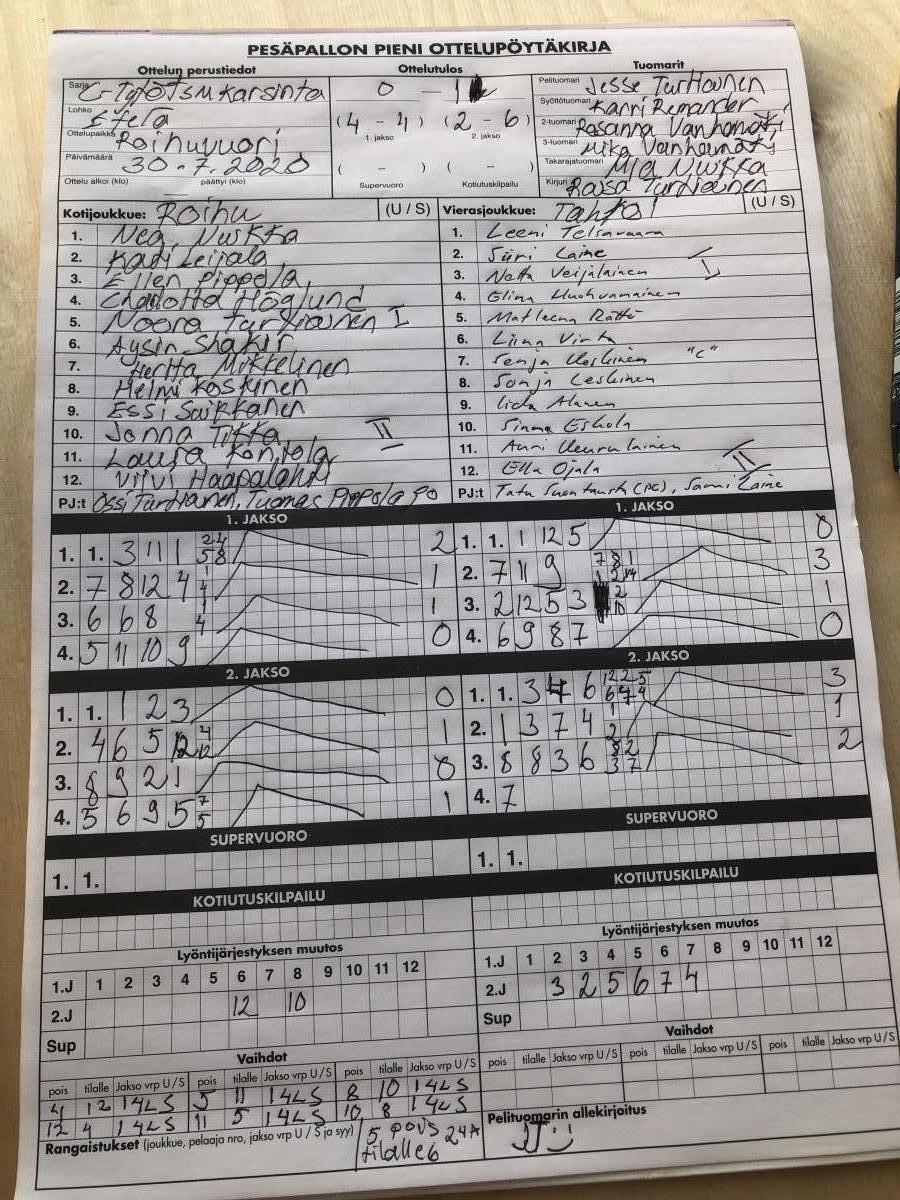 PESÄPALLON PIENI OTTELUPÖYTÄKIRJA
Ottelun perustiedot Ottelutulos Tuomarit
Sarja C-Tytöt SM karsinta 0 - 1 Pelituomari Jesse Turtiainen
Lohko Etelä Syöttötuomari Karri Remander
Ottelupaikka Roihuvuori (4 - 4) (2 - 6) 2-tuomari Rosanna Vanhamäki
1. jakso 2. jakso 3-tuomari Mika Vanhamäki
Päivämäärä 30.7.2020 ( - ) ( - ) Takarajatuomari Mia Nuikka
Ottelu alkoi (klo) päättyi (klo) Supervuoro Kotiutuskilpailu Kirjuri Raisa Turtiainen
Kotijoukkue: Roihu (U / S) Vierasjoukkue: Tahko (U / S)
1. Nea Nuikka 1. Leeni
2. Kadi Leijala 2. Siiri Laine
3. Ellen Pippola 3. Netta Veijalainen I
4. Charlotta Höglund 4. Elina
5. Noora Turtiainen I 5. Matleena Rättö
6. Aysin Shakir 6. Liina Virta
7. Hertta Mikkelinen 7. Senja Koskinen "C"
8. Helmi Koskinen 8. Sonja Leskinen
9. Essi Saikkanen 9. Iida Alanen
10. Jonna Tikka II 10. Sinna Eskola
11. Laura Kontola 11. Anni Keurulainen
12. Viivi Haapalahti 12. Ella Ojala II
PJ:t Ossi Turtiainen, Tuomas Pippola PJ:t Tatu (PC), Sami Laine
1. JAKSO 1. JAKSO
1. 1. 3 11 1 24 58 2 1. 1. 1 12 5 0
2. 7 8 12 4 1 4 1 2. 7 11 9 7 8 1 1 2 4 3
3. 6 6 8 1 4 1 3. 2 12 5 3 2 10 1
4. 5 11 10 9 0 4. 6 9 8 7 0
2. JAKSO 2. JAKSO
1. 1. 1 2 3 0 1. 1. 3 4 6 12 2 5 6 7 4 3
2. 4 6 5 12 4 12 1 2. 1 3 7 4 1 2 1
3. 8 9 2 1 0 3. 8 8 3 6 8 2 3 7 2
4. 3 6 9 5 7 5 1 4. 7
SUPERVUORO SUPERVUORO
1. 1. 1. 1.
KOTIUTUSKILPAILU KOTIUTUSKILPAILU
Lyöntijärjestyksen muutos Lyöntijärjestyksen muutos
1.J 1 2 3 4 5 6 7 8 9 10 11 12 1.J 1 2 3 4 5 6 7 8 9 10 11 12
2.J 12 10 2.J 3 2 5 6 7 4
Sup Sup
Vaihdot Vaihdot
pois tilalle Jakso vrp U/S pois tilalle Jakso vrp U/S pois tilalle Jakso vrp U/S pois tilalle Jakso vrp U/S pois tilalle Jakso vrp U/S pois tilalle Jakso vrp U/S
4 12 14LS 5 11 14LS 8 10 14LS
12 4 14LS 11 5 14LS 10 8 14LS
Rangaistukset (joukkue, pelaaja nro, jakso vrp U / S ja syy) 5 pois 24A Pelituomarin allekirjoitus
tilalle 6